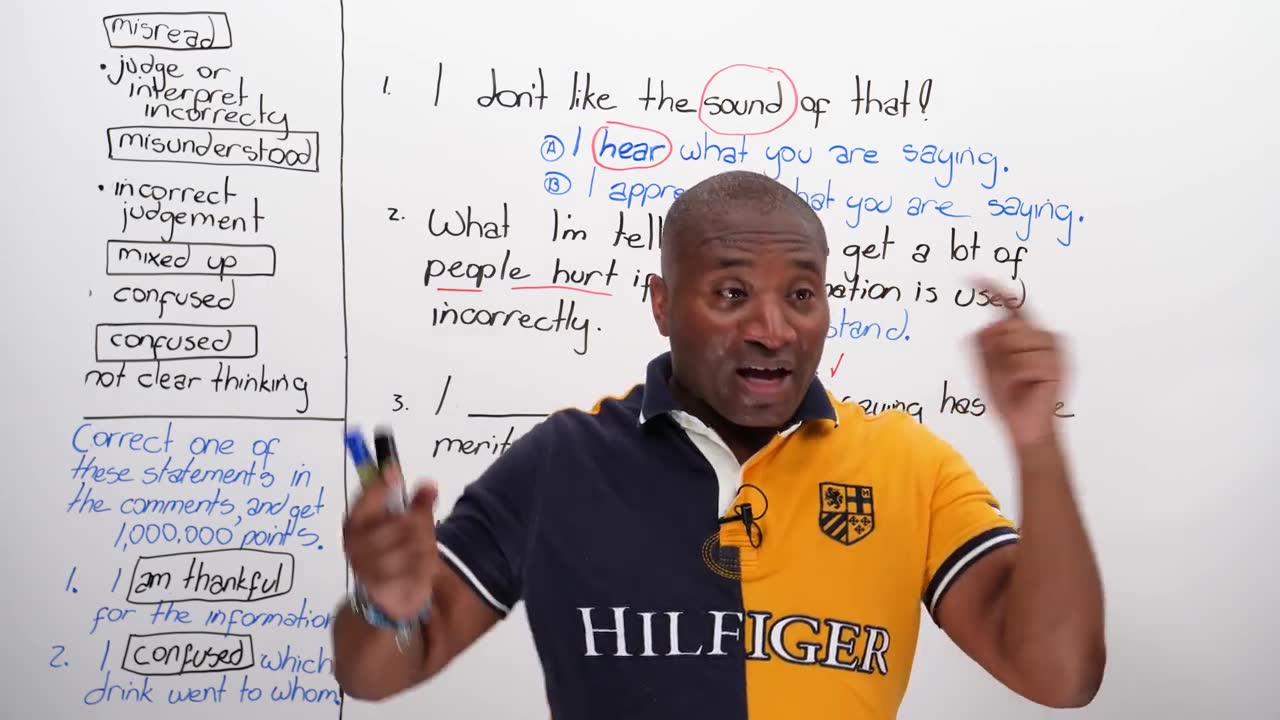 misread
• judge or
interpret
incorrecty
misunderstood
• incorrect
judgement
mixed up
confused
confused
not clear thinking
Correct one of
these statements in
the comments, and get
1,000,000 points.
1. I am thankful
for the information
2. I confused which
drink went to whom.
1. I don't like the sound of that!
Ⓐ I hear what you are saying.
Ⓑ I what you are saying.
2. What I'm get a lot of
people hurt if is used
incorrectly.
3. I ______ saying has
merit
HILFIGER